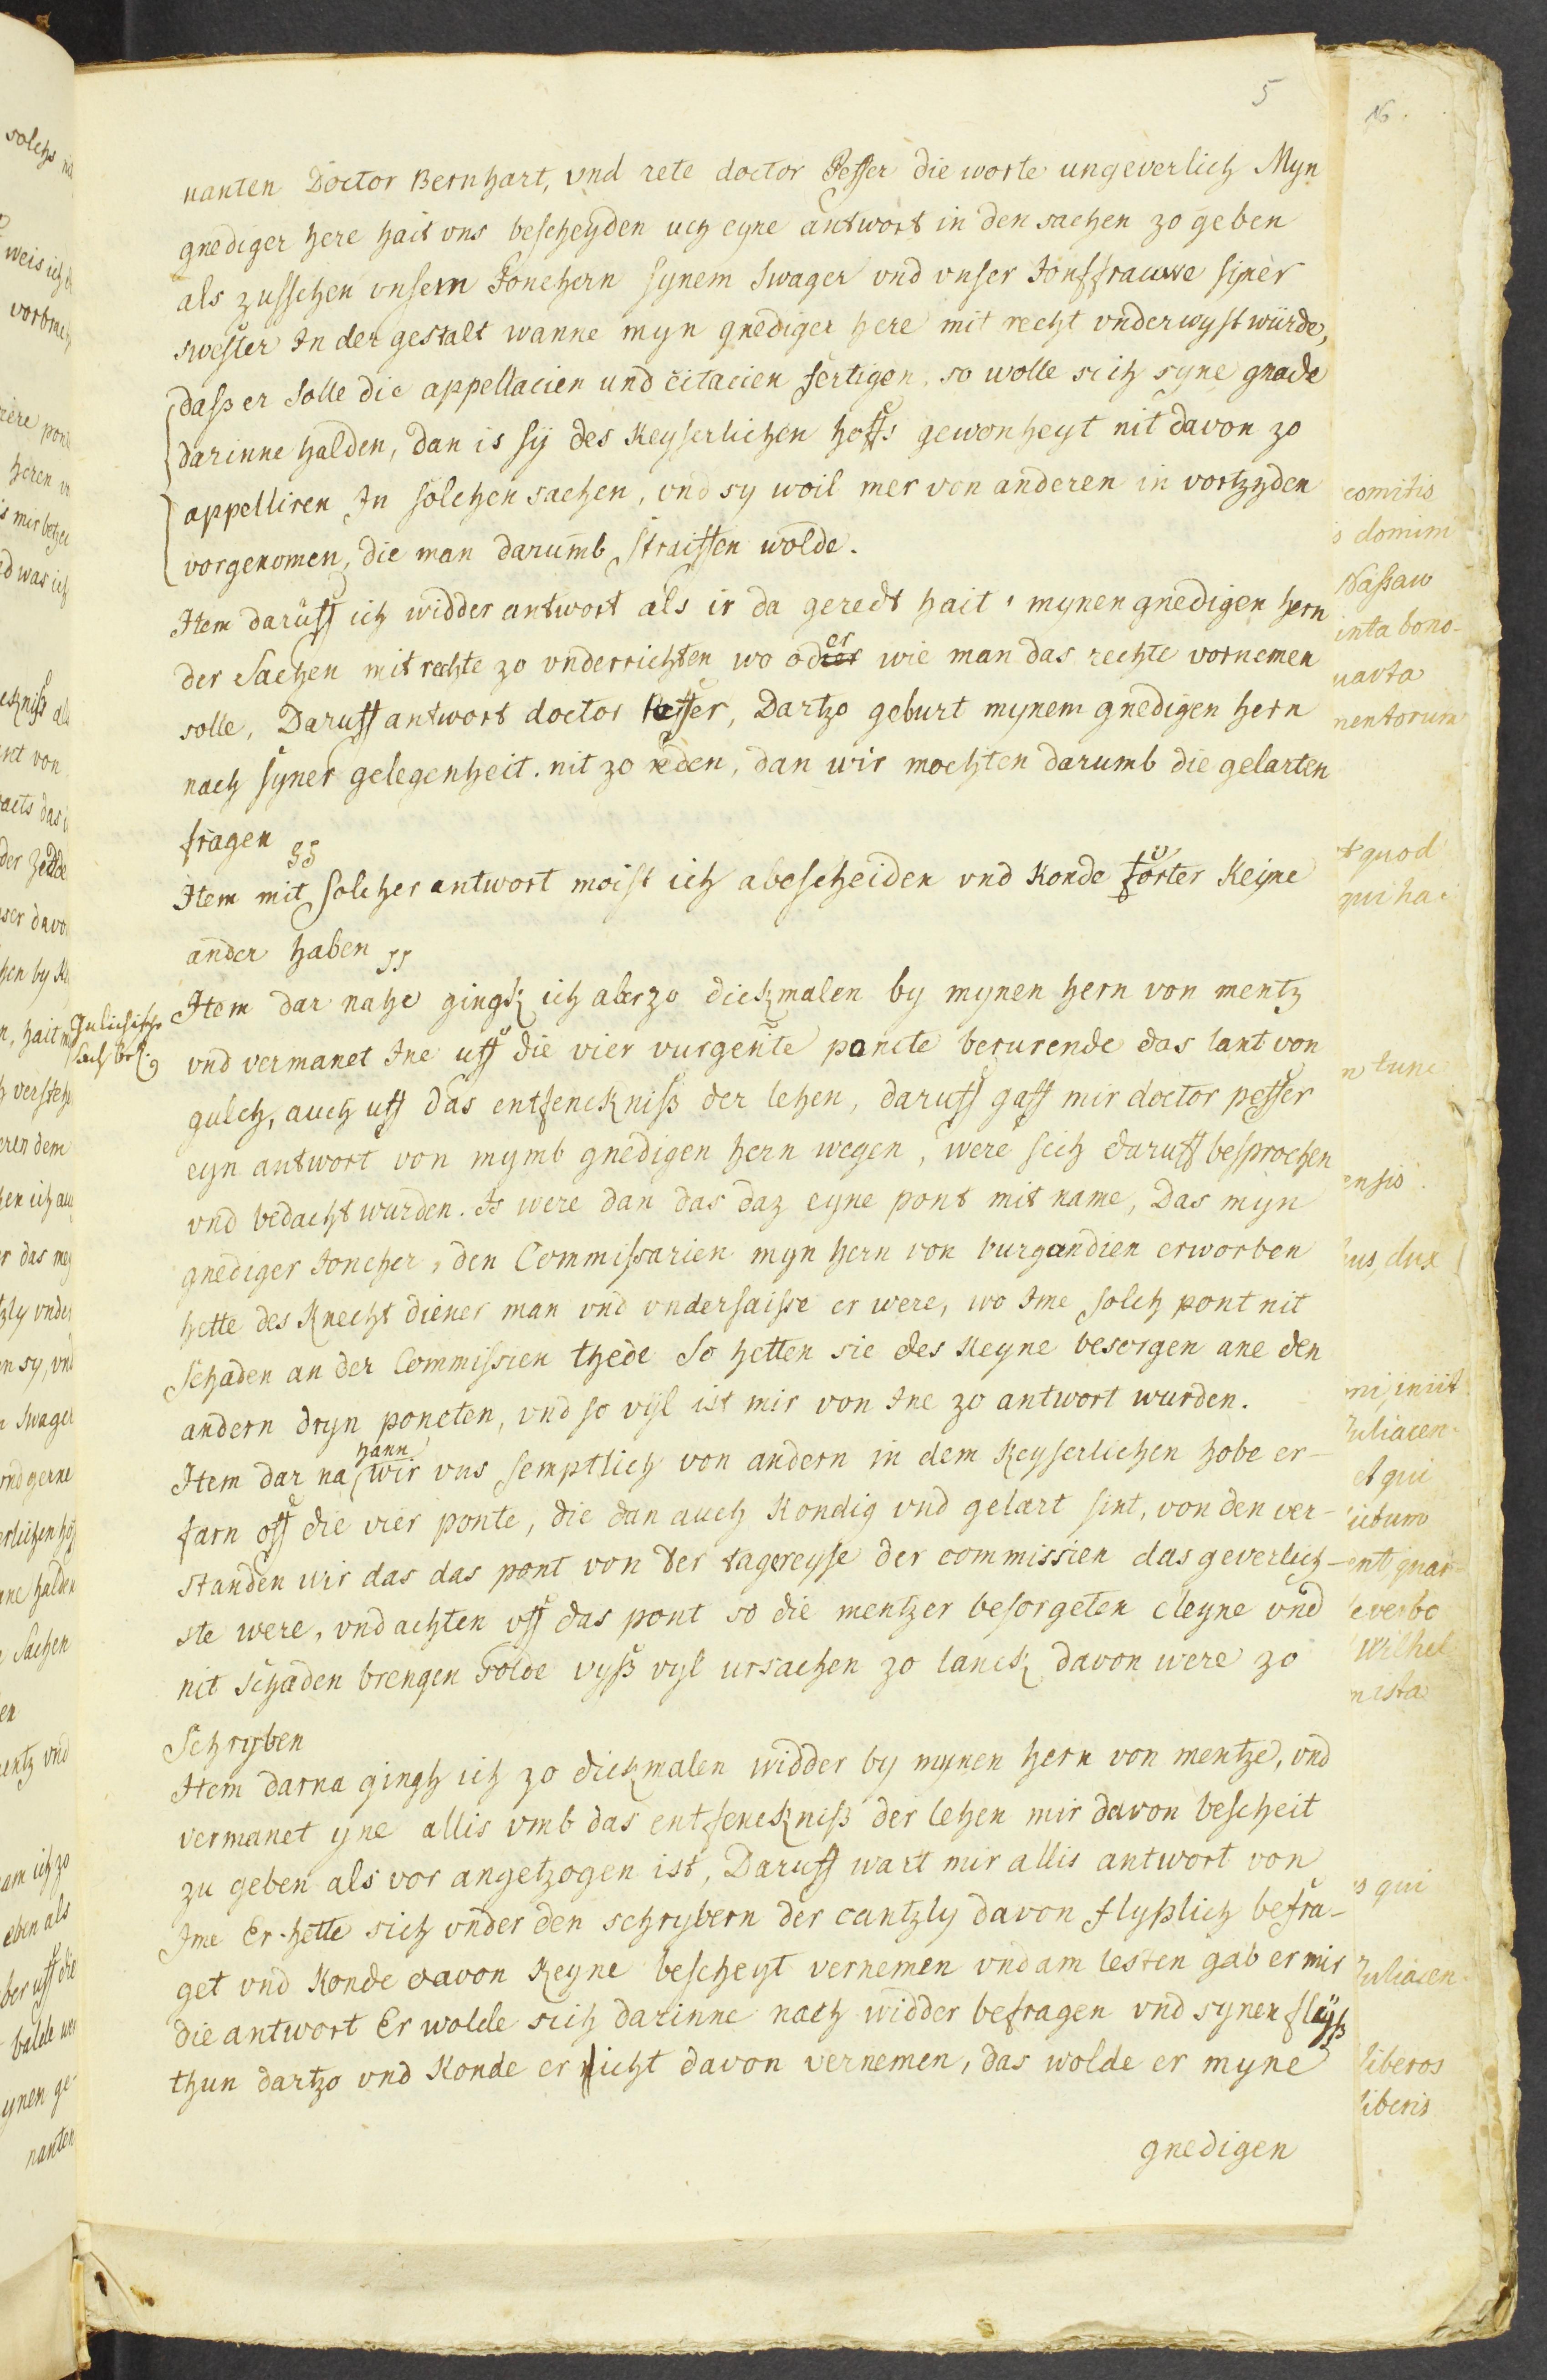 5
nanten Doctor Bernhart, vnd rete doctor Pesser die worte ungeverlich Myn
gnediger here hait vns bescheyden uch eyne antwort in den sachen zo geben
als zusschen vnsern Jonchern synem Swager vnd vnser Jonffrauwe siner
swester In der gestalt wanne myn gnediger here mit recht vnderwyst würde,
daß er Solle die appellacien und citacien fertigen, so wolle sich syne gnade
darinne halden, dan is sÿ des Keyserlichen hoffs gewonheyt nit davon zo
appelliren In solchen sachen, vnd sy woil mer von anderen in vortzyden
vorgenomen, die man darumb straiffen wolde.
Item daruff ich widder antwort als ir da geredt hait, mynen gnedigen hern
der Sachen mit rechte zo vnderrichten wo oder wie man das rechte vornemen
solle, Daruff antwort doctor Pesser, Dartzo geburt mynem gnedigen hern
nach syner gelegenheit. nit zo reden, dan wir mochten darumb die gelarten
fragen
Item mit solcher antwort moist ich abescheiden vnd Konde forter Keyne
ander haben
Item dar nahe gingk ich aber zo dickmalen by mynen hern von mentz
vnd vermanet Ine uff die vier vurgente poncte berurende das lant von
gulch, auch uff das entfenckniß der lehen, daruff gaff mir doctor pesser
eyn antwort von mymb gnedigen hern wegen, were sich daruff besprochen
vnd bedacht wurden. Is were dan das daz eyne pont mit name, Das myn
gnediger Joncher, den Commissarien myn hern von burgandien erworben
hette des Knecht diener man vnd vndersaisse er were, wo Ime solch pont nit
Schaden an der Commissien thede So hetten sie des Keyne besorgen ane den
andern dryn poncten, vnd so vyl ist mir von Ine zo antwort wurden.
Item dar na hann wir vns semptlich von andern in dem Keyserlichen hobe er-
farn off die vier ponte, die dan auch Kondig vnd gelart sint, von den ver-
standen wir das das pont von der tagereyse der commissien das geverlich-
ste were, vnd achten off das pont so die mentzer besorgeten cleyne vnd
nit schaden brengen solde vyß vyl ursachen zo lanck davon were zo
Schryben
Item darna gingh ich zo dickmalen widder by mynen hern von mentze, vnd
vermanet yne allis vmb das entfenckniß der lehen mir davon bescheit
zu geben als vor angetzogen ist, Daruff wart mir allis antwort von
Ime Er hette sich vnder den schrybern der cantzly davon flyßlich befra-
get vnd Konde davon Keyne bescheyt vernemen vnd am lesten gab er mir
die antwort Er wolde sich darinne nach widder befragen vnd synen flyß
thun dartzo vnd Konde er icht davon vernemen, das wolde er myne
gnedigen